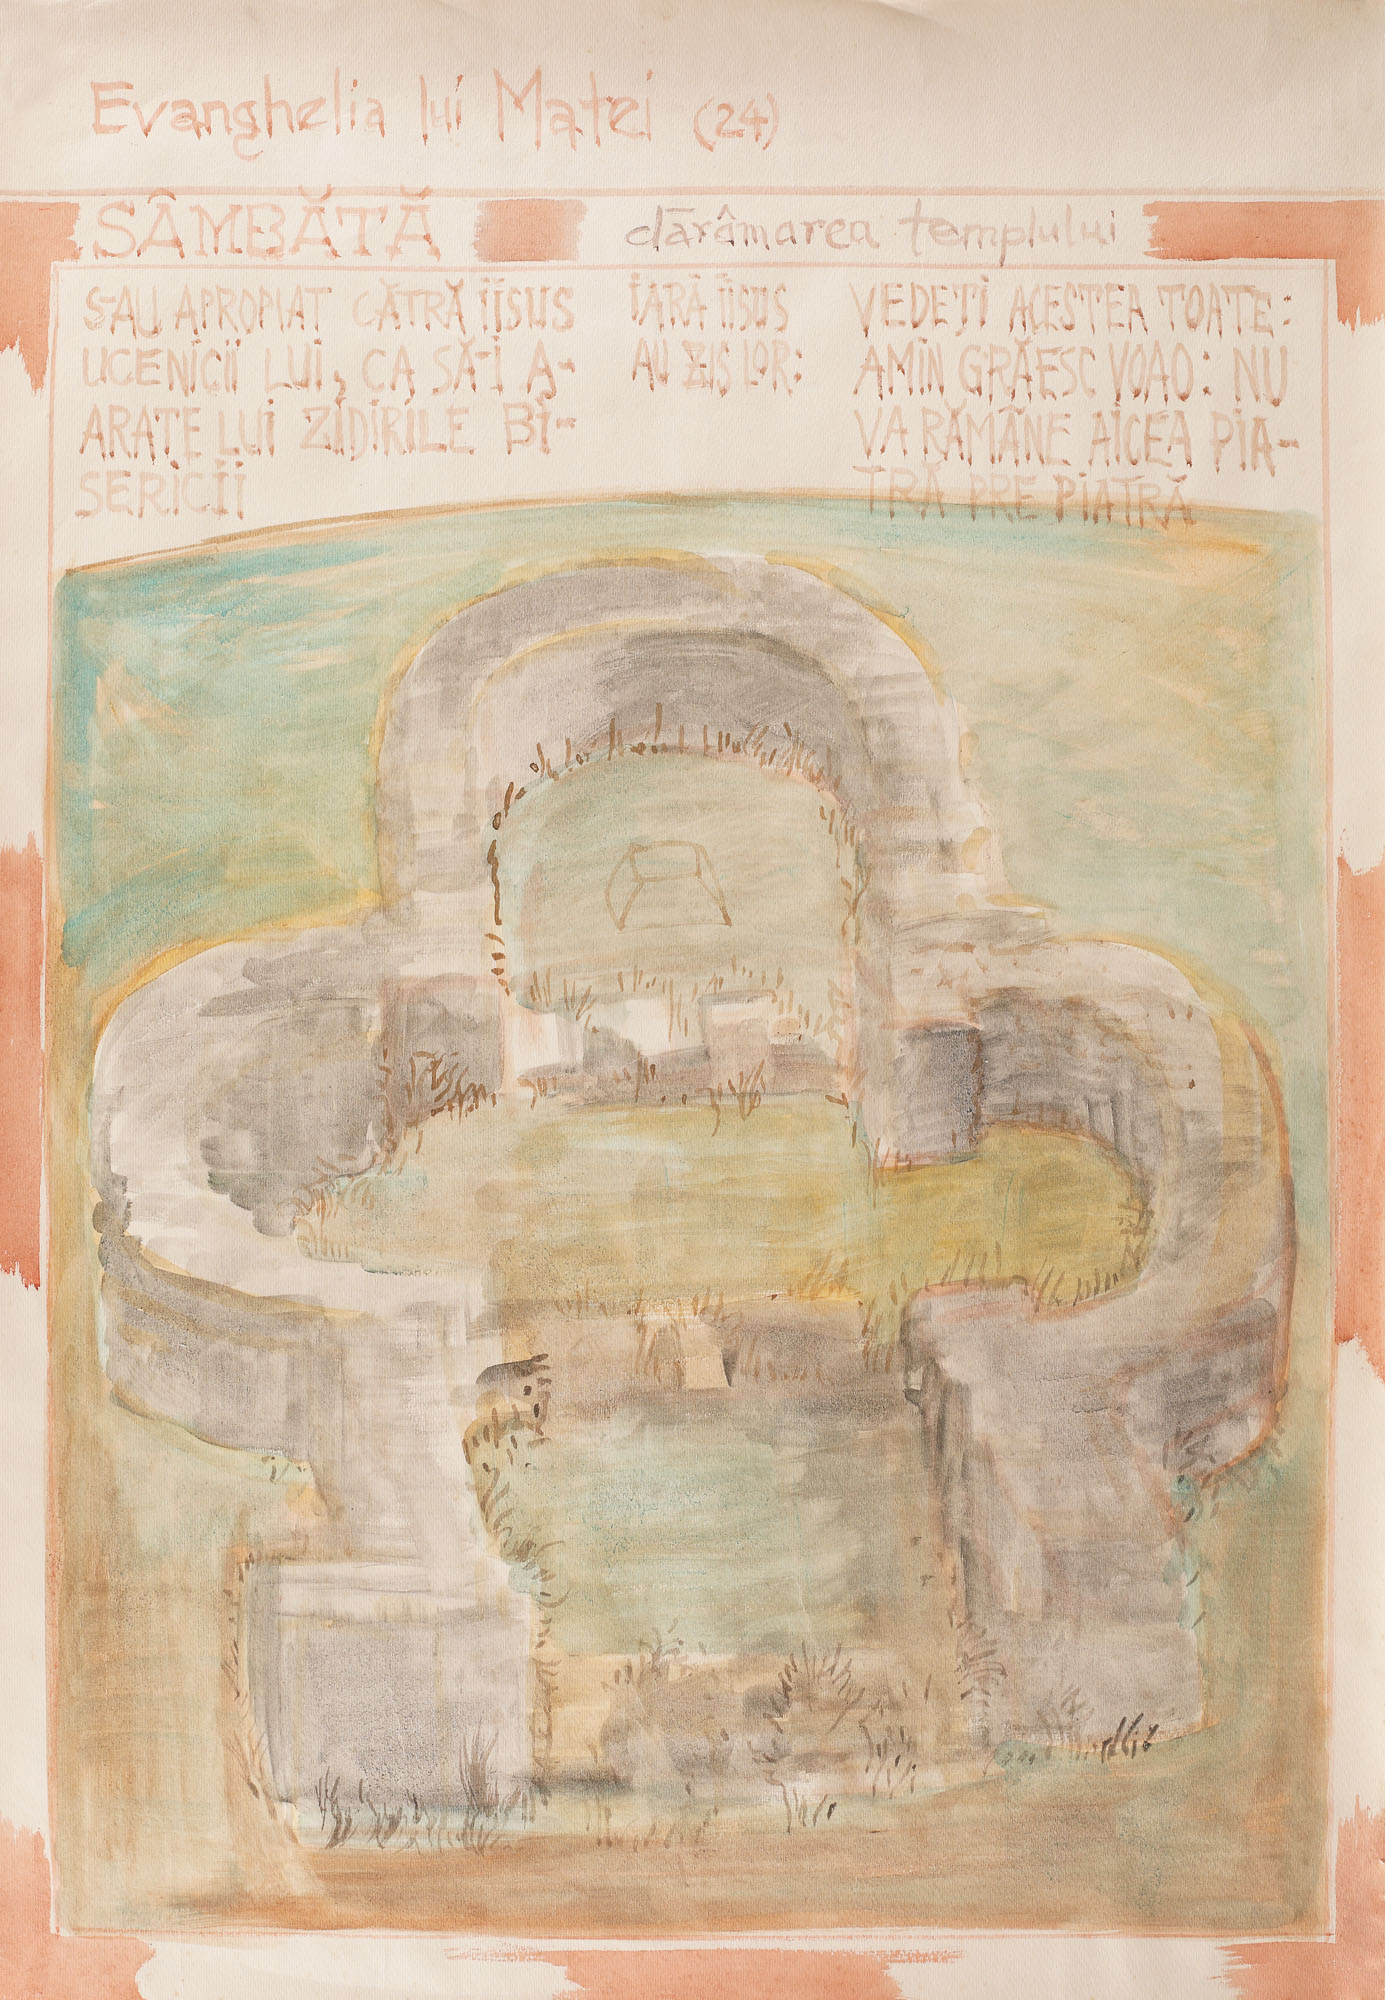 Evanghelia lui Matei (24)
SÂMBĂTĂ
dărâmarea templului
S-AU APROPIAT CĂTRĂ IISUS
UCENICII LUI, CA SĂ-I A-
RATE LUI ZIDIRILE BI-
SERICII
IARĂ IISUS
AU ZIS LOR:
VEDEȚI ACESTEA TOATE:
AMIN GRĂESC VOAO: NU
VA RĂMÂNE AICEA PIA-
TRĂ PRE PIATRĂ